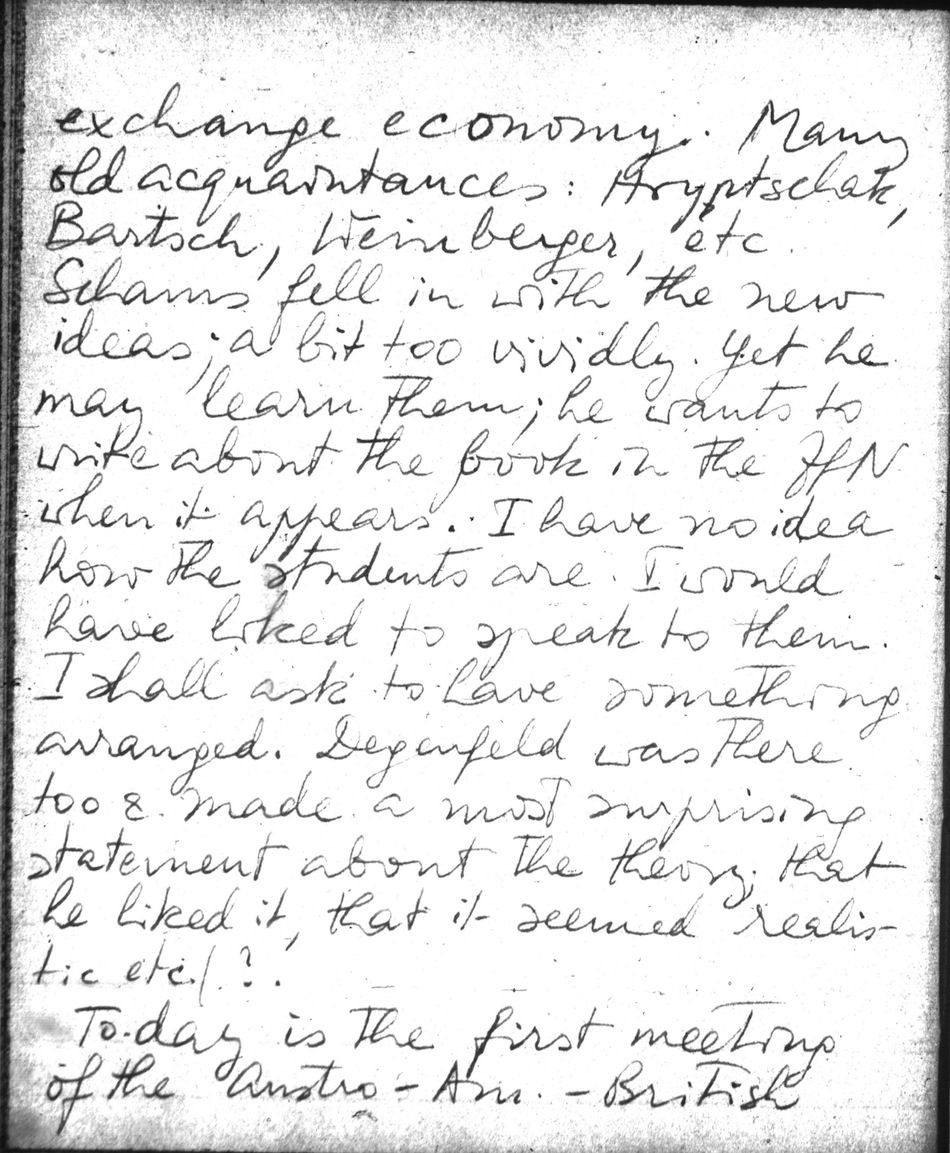 exchange economy. Many
old acquaintances: Hryptschak,
Bartsch, Weinberger, etc.
Schams fell in with the new
ideas; a bit too vividly. Yet he
may learn them; he wants to
write about the book in the ZfN
when it appears. I have no idea
how the students are. I would
have liked to speak to them.
I shall ask to have something
arranged. Degenfeld was there
too & made a most surprising
statement about the theory; that
he liked it, that it seemed realis-
tic etc.!?.
To-day is the first meeting
of the Austro-Am.-British